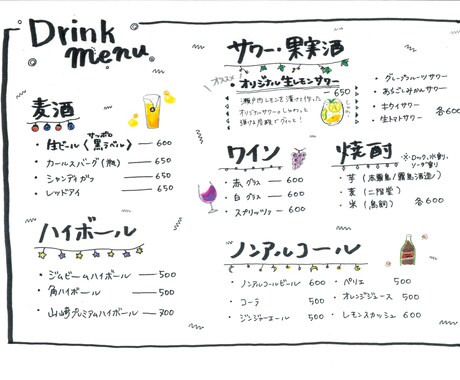 Drink
menu
麦酒
・生ビール〈黒ラベル〉 — 600
サッポロ
・カールスバーグ(瓶) — 650
・シャンディガフ — 650
・レッドアイ — 650
ハイボール
・ジムビームハイボール — 500
・角ハイボール — 500
・山崎プレミアムハイボール — 700
サワー・果実酒
オススメ
・オリジナル生レモンサワー
— 650
瀬戸内レモンを漬けて作った
オリジナルサワーのしゅわっと
弾ける炭酸でグイッと!
・グレープフルーツサワー
・あらごしみかんサワー
・ホワイトサワー
・生トマトサワー 各600
ワイン
・赤 グラス — 600
・白 グラス — 600
・スプリッツァー — 600
焼酎
※ロック、水割り、
ソーダ割り
・芋(赤霧島/霧島酒造)
・麦(二階堂)
・米(鳥飼) 各600
ノンアルコール
・ノンアルコールビール 600
・コーラ 500
・ジンジャーエール 500
・ペリエ 500
・オレンジジュース 500
・レモンスカッシュ 600